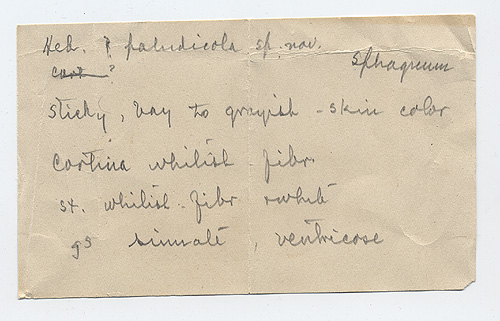 Heb. ? paludicola sp. nov.
Sphagnum
Cort ?
sticky, bay to grayish - skin color
Cortina whitish - fibr.
st. whitish - fibr white
gs sinuate, ventricose